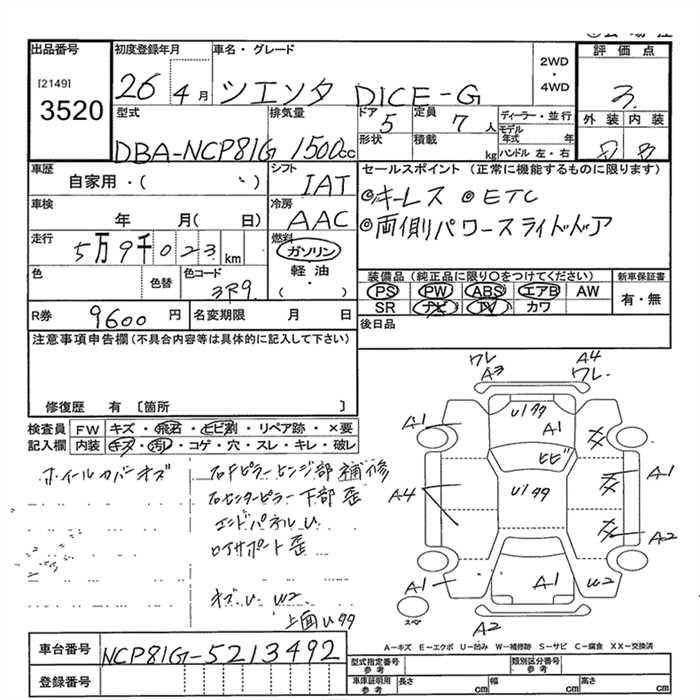 出品番号
[2149]
3520
初度登録年月
26 4月
車名・グレード
シエンタ DICE-G
2WD
・
4WD
評価点
3.
外装 内装
型式
DBA-NCP81G
排気量
1500cc
ドア
5
形状
定員
7人
積載
kg
ディーラー・並行
モデル年式 年
ハンドル 左・右
車歴
自家用・( )
シフト
IAT
セールスポイント(正常に機能するものに限ります)
◎キーレス ◎ETC
◎両側パワースライドドア
車検
年 月( 日)
冷房
AAC
走行
5万9千023km
燃料
ガソリン
軽油
( ・ )
色
色替
色コード
3R9
装備品(純正品に限り○をつけてください)
PS PW ABS エアB AW
SR ナビ TV カワ
新車保証書
有・無
R券 9600円
名変期限 月 日
後日品
注意事項申告欄(不具合内容等は具体的に記入して下さい)
修復歴 有 [箇所 ]
検査員記入欄
FW キズ・飛石・ヒビ割・リペア跡・×要
内装 キズ・汚レ・コゲ・穴・スレ・キレ・破レ
ホイールカバーキズ
右Fピラーヒンジ部補修
右センターピラー下部歪
エンドパネルU
ロアサポート歪
キズ.U. W2
上面U99
ワレ
A3
A4
ワレ
U199
A1
A1
ヒビ
A4
U199
A1
A2
A1
A1
W2
スペア
A2
車台番号
NCP81G-5213492
登録番号
A-キズ E-エクボ U-凹み W-補修跡 S-サビ C-腐食 XX-交換済
型式指定番号
参考
類別区分番号
参考
車庫証明用
参考
長さ cm
幅 cm
高さ cm